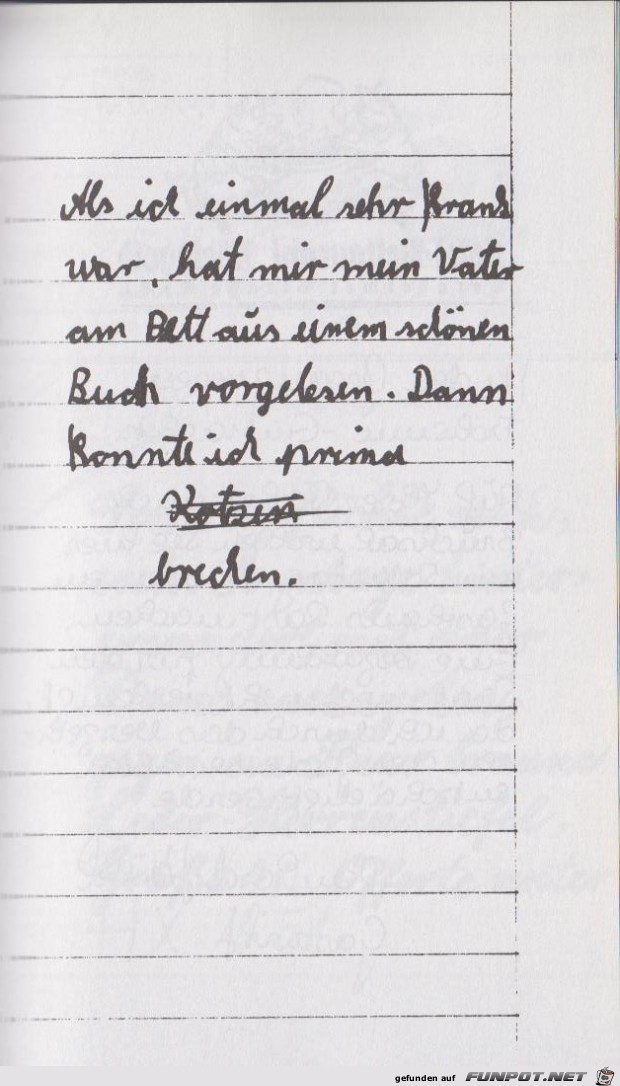 Als ich einmal sehr krank
war, hat mir mein Vater
am Bett aus einem schönen
Buch vorgelesen. Dann
konnte ich prima
Kotzen
brechen.
gefunden auf FUNPOT.NET